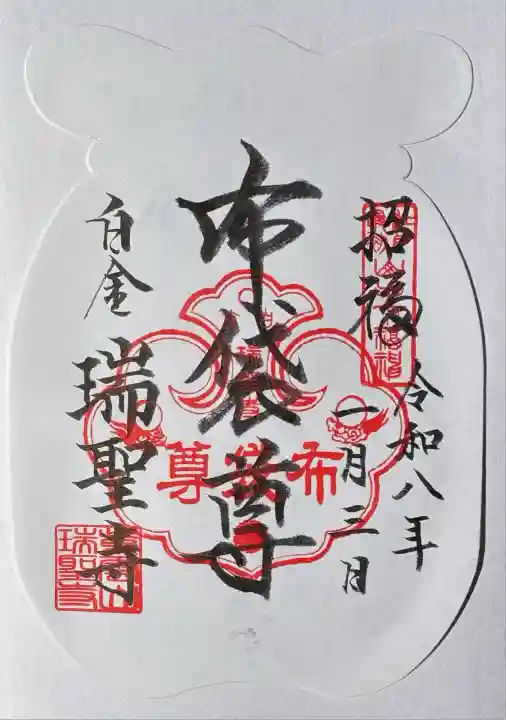 招福
令和八年
一月三日
布袋尊
白金
瑞聖寺
布袋尊
瑞聖寺